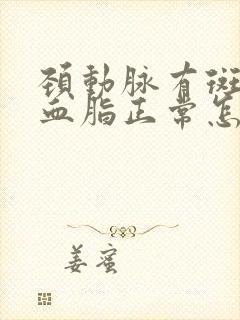 頚動脉有斑
血脂正常怎
姜蜜